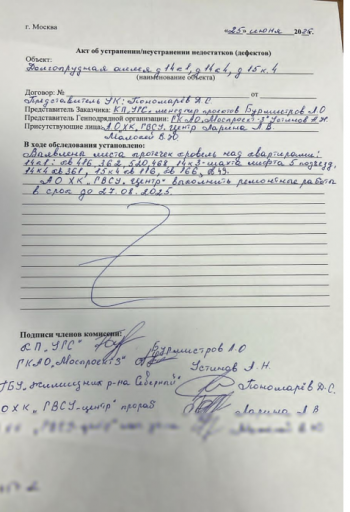 г. Москва
«25» июня 2025г.
Акт об устранении/неустранении недостатков (дефектов)
Объект:
Долгопрудная аллея д 14к1, д 14к4, д 15 к.4
(наименование объекта)
Договор: № от
Представитель УК: Пономарёв Д.С.
Представитель Заказчика: КП „УГС" менеджер проектов Бурмистров А.О
Представитель Генподрядной организации: ГК АО „Моспроект-3" Устинов А.Н.
Присутствующие лица: АО ХК „ГВСУ" центр Ларина Л.В.
В ходе обследования установлено:
Выявлена места протечек кровель над квартирами:
14к1: кв 416, 362, 520, 468 14к3-шахта лифта 5 подъезд.
14к4 кв 361, 15к4 кв 116, кв 166,
„АО ХК „ГВСУ-Центр" выполнить ремонтные работы
в срок до 27.08.2025.
Подписи членов комиссии:
КП „УГС" Бурмистров А.О
ГК АО „Моспроект-3" Устинов А.Н.
ГБУ „Жилищник р-на Северный" Пономарёв Д.С.
АО ХК „ГВСУ-центр" прораб Ларина Л В